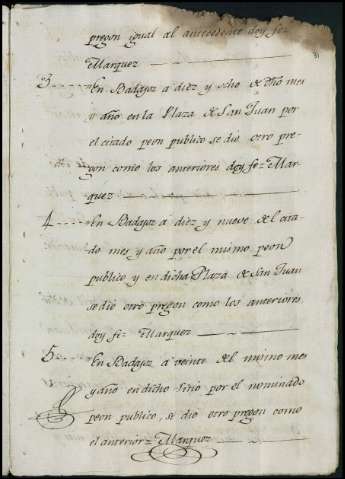 pregon igual al antecedente doy fe=
Marquez
3 En Badajoz a diez y ocho de dho mes
y año en la Plaza de San Juan por
el citado peon publico se dio otro pre-
gon como los anteriores doy fe= Mar-
quez
4 En Badajoz a diez y nueve del cita-
do mes y año por el mismo peon
publico y en dicha Plaza de San Juan
se dio otro pregon como los anteriores
doy fe= Marquez
5 En Badajoz a veinte del mismo mes
y año en dicho sitio por el nominado
peon publico, se dio otro pregon como
el anterior= Marquez